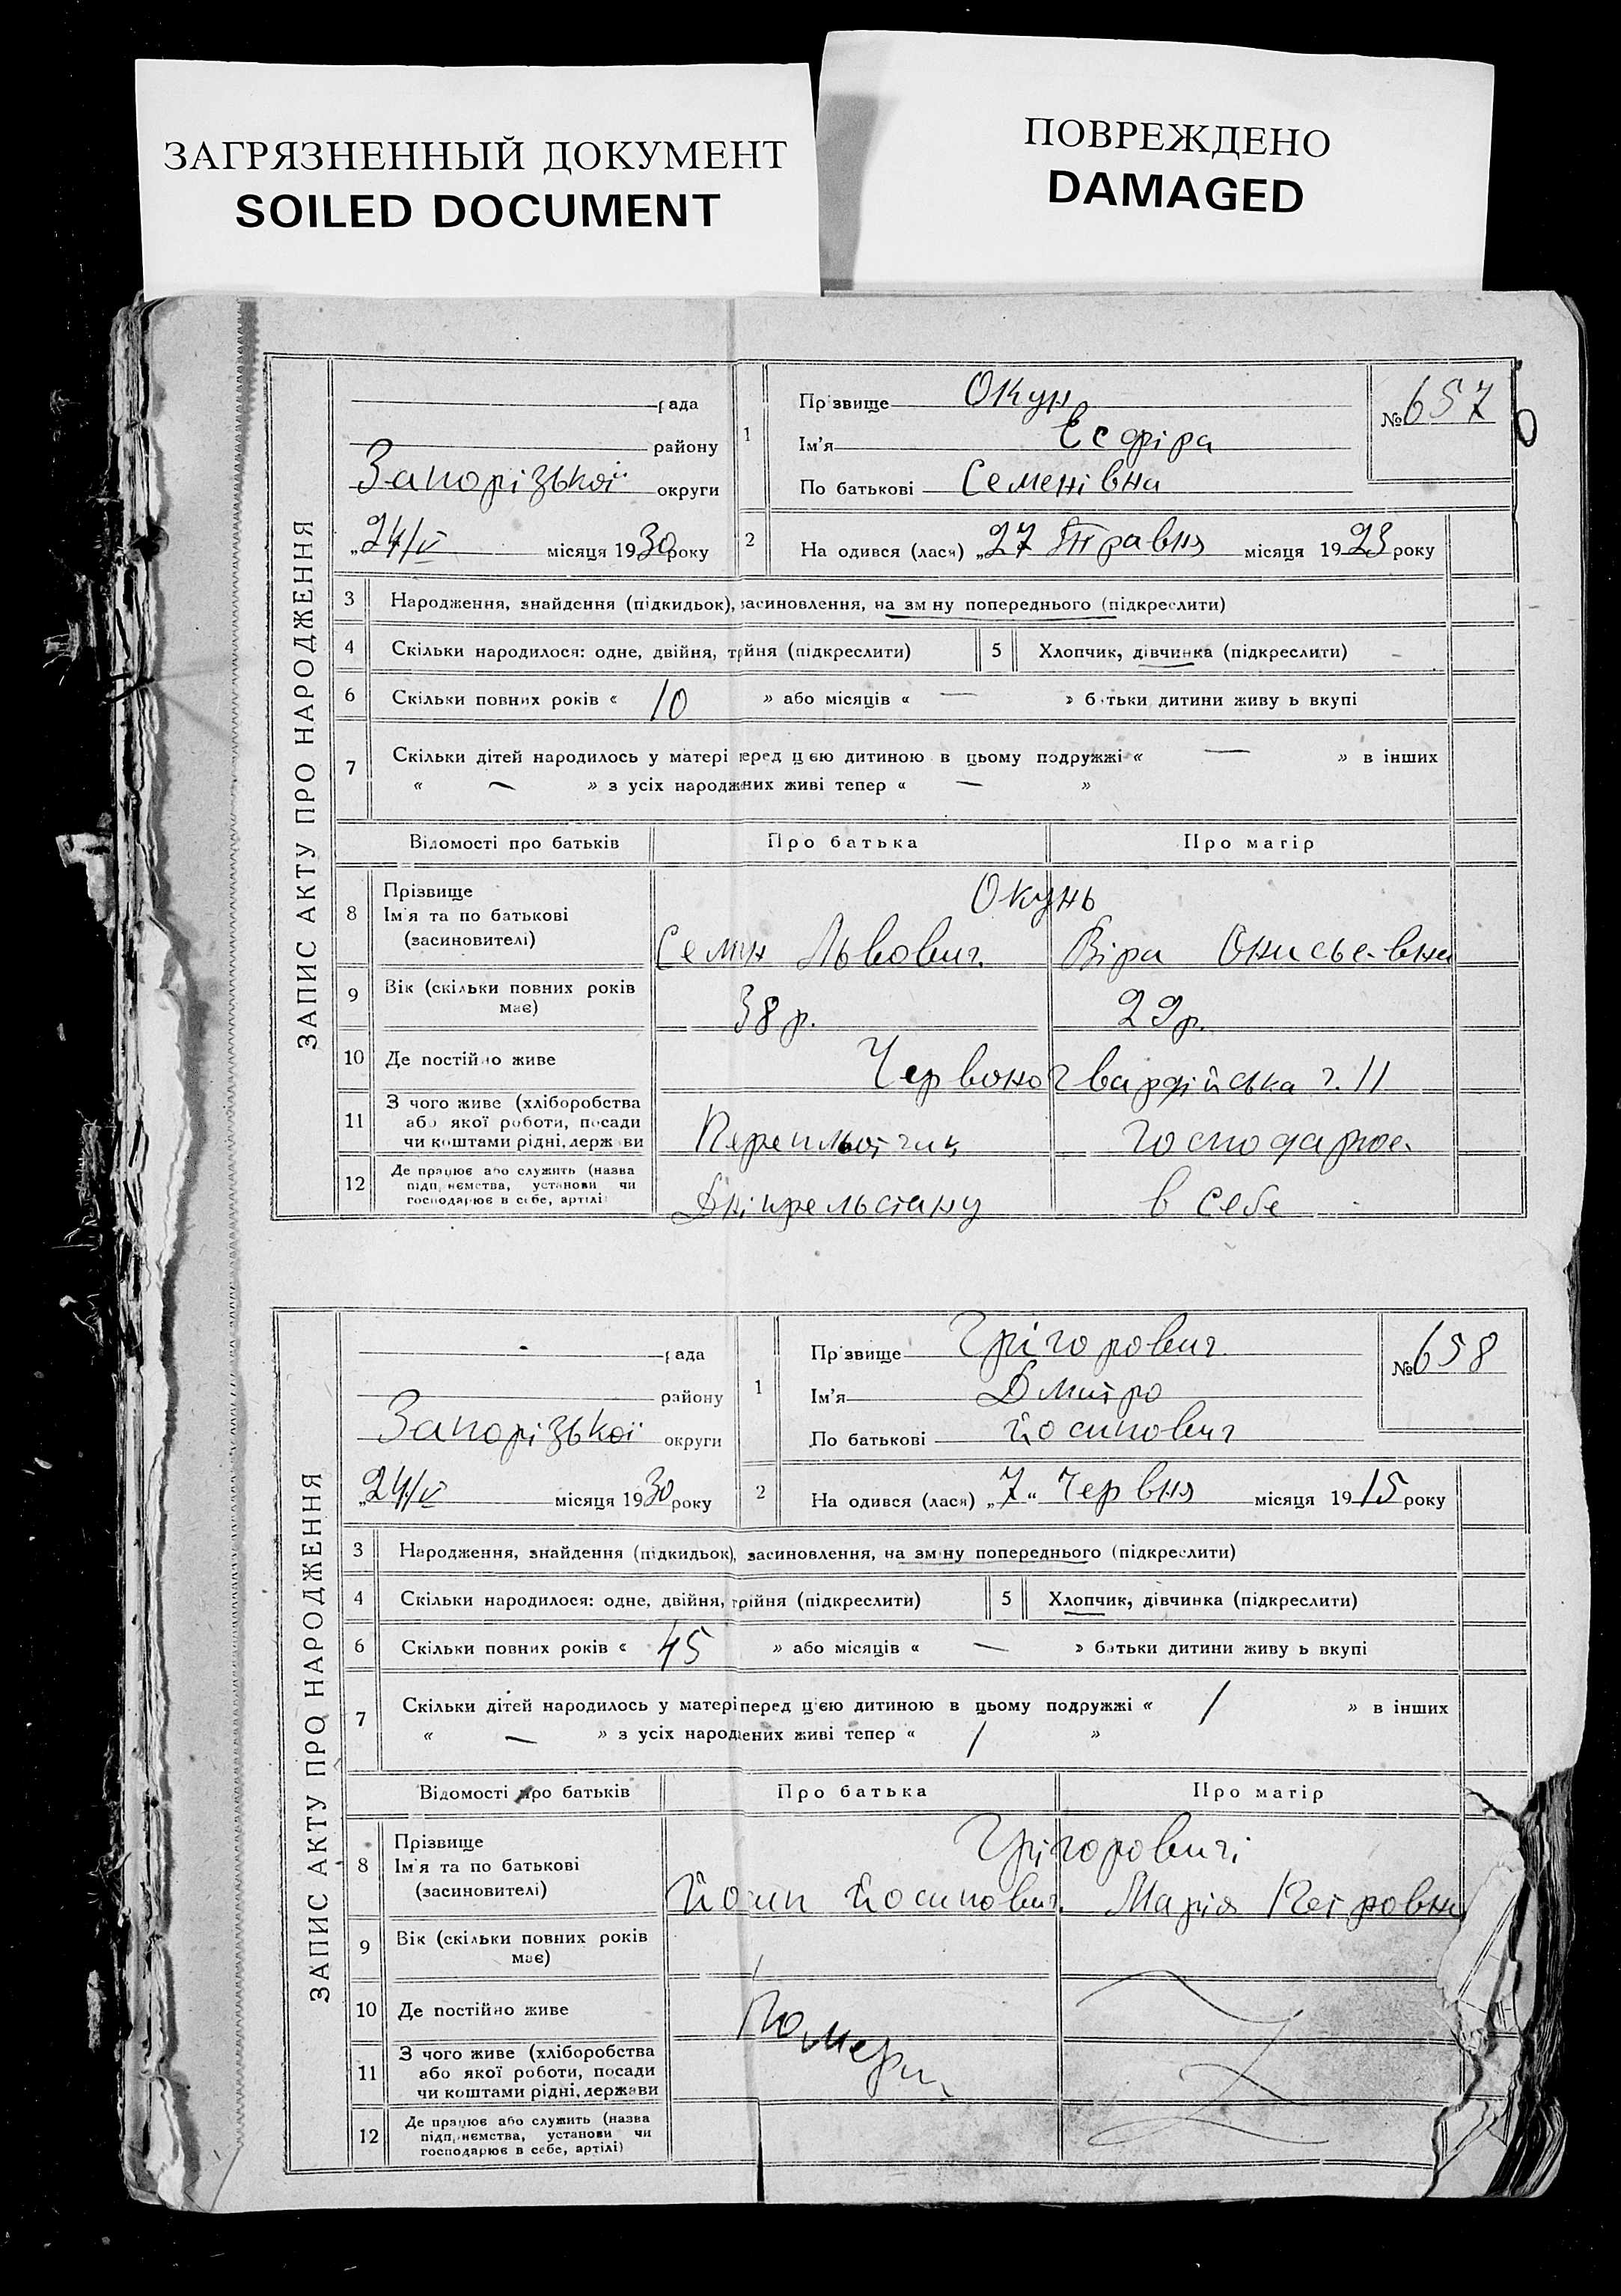 ЗАГРЯЗНЕННЫЙ ДОКУМЕНТ
SOILED DOCUMENT
ПОВРЕЖДЕНО
DAMAGED
ЗАПИС АКТУ ПРО НАРОДЖЕННЯ
рада
району
Запорізької округи
„24/V місяця 1930 року
1 Прізвище Окун
Ім'я Есфіра
По батькові Семенівна
№ 657
2 На одився (лася) „27 Травня місяця 1923 року
3 Народження, знайдення (підкидьок), засиновлення, на зм ну попереднього (підкреслити)
4 Скільки народилося: одне, двійня, трійня (підкреслити) 5 Хлопчик, дівчинка (підкреслити)
6 Скільки повних років « 10 » або місяців « — » батьки дитини живу ь вкупі
7 Скільки дітей народилось у матері перед цією дитиною в цьому подружжі « — » в інших
« — » з усіх народжених живі тепер « — »
Відомості про батьків Про батька Про матір
8 Прізвище Окунь
Ім'я та по батькові
(засиновителі) Семун Львович Віра Онисьевна
9 Вік (скільки повних років має) 38 р. 29 р.
10 Де постійно живе Червоногвардійська 2. 11
11 З чого живе (хліборобства
або якої роботи, посади
чи коштами рідні, держави Перепльотчик господарює
12 Де працює або служить (назва
підприємства, установи чи
господарює в себе, артілі) Дніпрельстану в себе
ЗАПИС АКТУ ПРО НАРОДЖЕННЯ
рада
району
Запорізької округи
„24/V місяця 1930 року
1 Прізвище Грігорович
Ім'я Дмитро
По батькові Йосипович
№ 658
2 На одився (лася) „7“ Червня місяця 1915 року
3 Народження, знайдення (підкидьок), засиновлення, на зміну попереднього (підкреслити)
4 Скільки народилося: одне, двійня, трійня (підкреслити) 5 Хлопчик, дівчинка (підкреслити)
6 Скільки повних років « 45 » або місяців « — » батьки дитини живу ь вкупі
7 Скільки дітей народилось у матері перед цією дитиною в цьому подружжі « 1 » в інших
« — » з усіх народжених живі тепер « 1 »
Відомості про батьків Про батька Про матір
8 Прізвище Грігоровичі
Ім'я та по батькові
(засиновителі) Йосип Йосипович Марія Петровна
9 Вік (скільки повних років має)
10 Де постійно живе Померли
11 З чого живе (хліборобства
або якої роботи, посади
чи коштами рідні, держави
12 Де працює або служить (назва
підприємства, установи чи
господарює в себе, артілі)